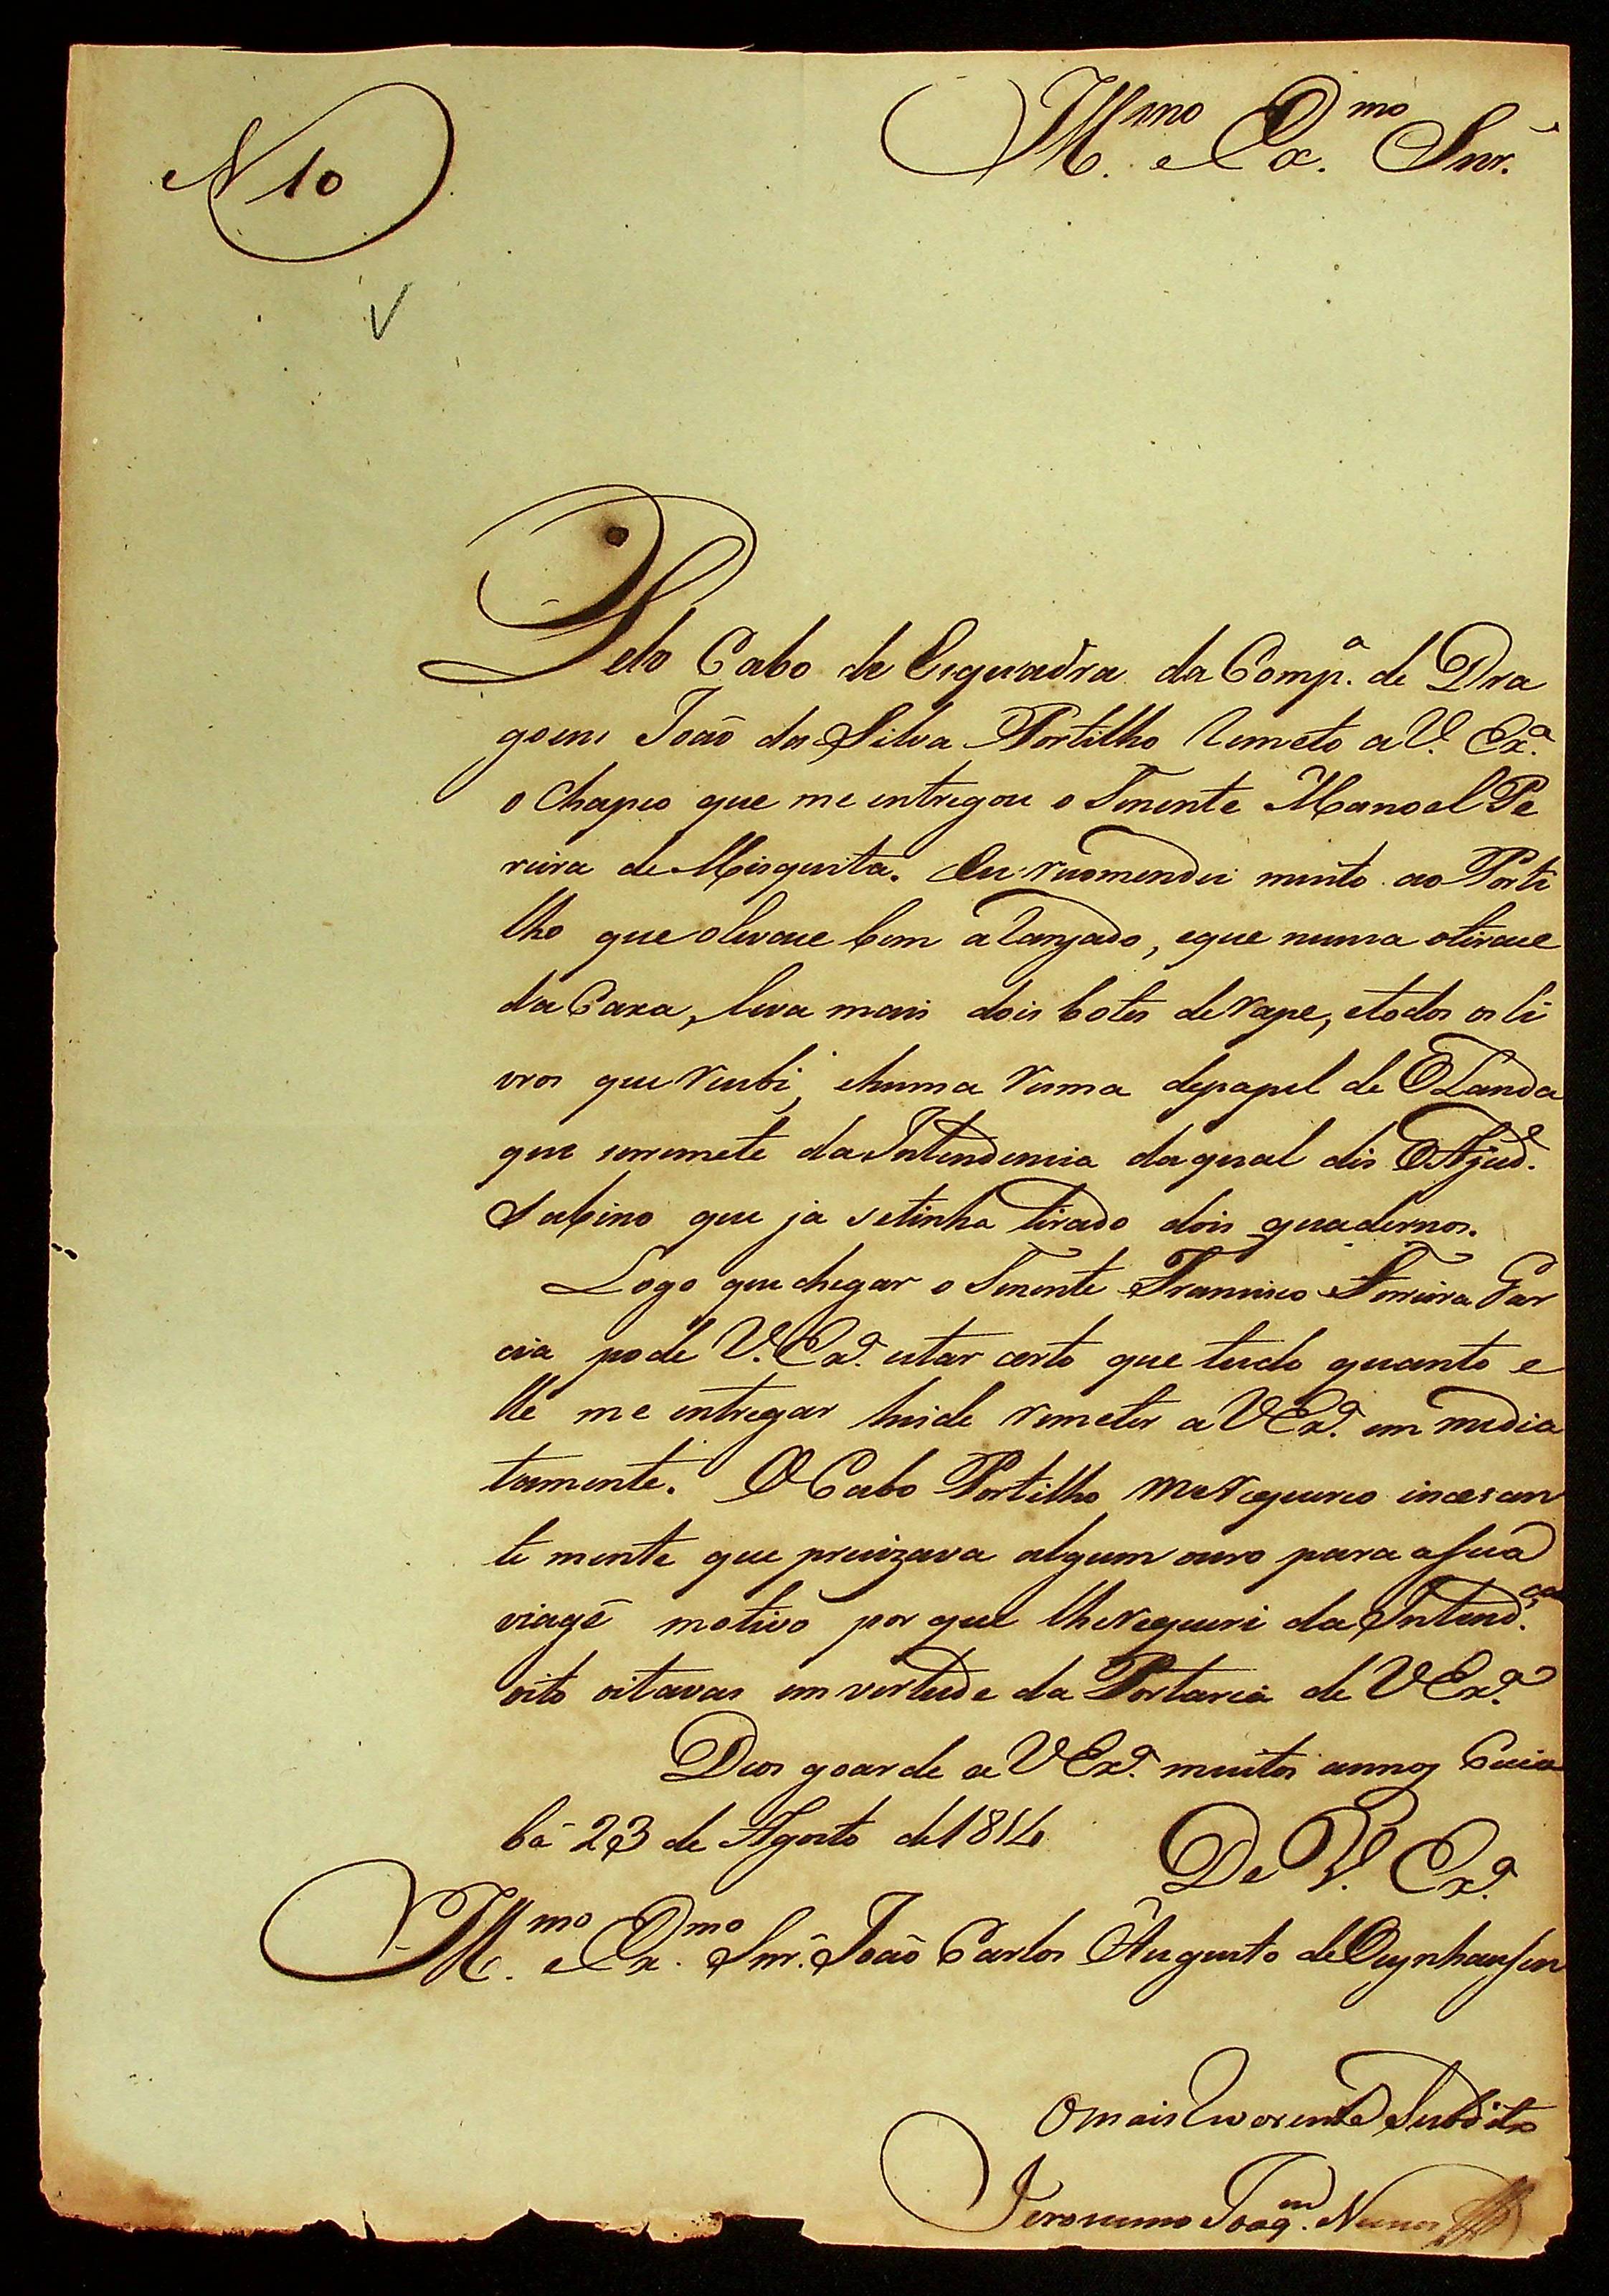 N 10
Illmo e Exmo Snr.
Pelo Cabo de Esquadra da Compa. de Dra
goens João da Silva Portilho remeto a V. Exa.
o Chapeo que me entregou o Tenente Manoel Pe
reira de Misquita. Eu recomendei muito ao Porti
lho que olevace bem aranjado, eque nunca otirace
da Caxa, leva mais dois botes de rape, etodos os li
vros que recebi, ehuma resma depapel de OLanda
que seremete da Intendencia daqual dis OAjude.
Sabino que ja setinha tirado dois quadernos.
Logo que chegar o Tenente Francisco Ferreira Gar
cia pode V. Exa. estar certo que tudo quanto e
lle me entregar heide remeter a VExa. em media
tamente. O Cabo Portilho merequereo incesan
te mente que precizava algum ouro para asua
viagē motivo por que lhe requeri da Intendca.
oito oitavas em vertude da Portaria de VExa.
Deos goarde a VExa. muitos annos Cuia
bá 23 de Agosto de 1814
De V. Exa.
Illmo e Exmo. Snr. João Carlos Augusto de Oeynhausen
Omais Reverente Subdito
Jeronimo Joaqm. Nunes